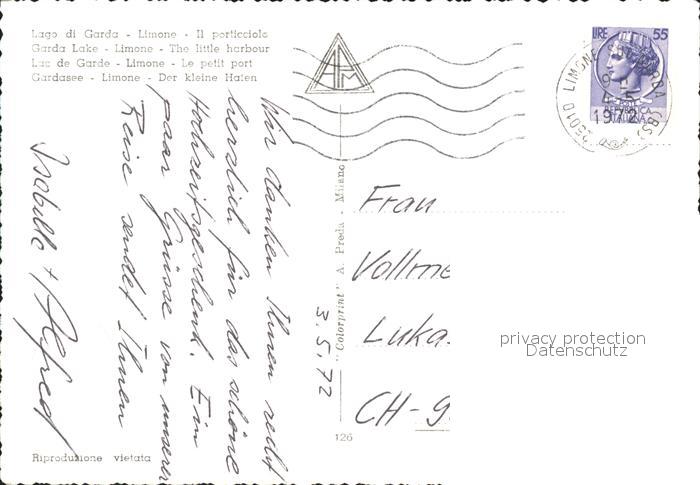 Lago di Garda - Limone - Il porticciolo
Garda Lake - Limone - The little harbour
Lac de Garde - Limone - Le petit port
Gardasee - Limone - Der kleine Hafen
Wir danken Ihnen recht
herzlich für das schöne
Hochzeitsgeschenk. Ein
paar Grüsse von unserer
Reise sendet Ihnen
Isabelle + Alfred
3.5.72
"Colorprint" A. Preda - Milano
126
Riproduzione vietata
LIRE 55
25010 LIMONE SUL GARDA (BS)
4-5
1972
Frau
Vollme
Luka
CH-9
privacy protection
Datenschutz